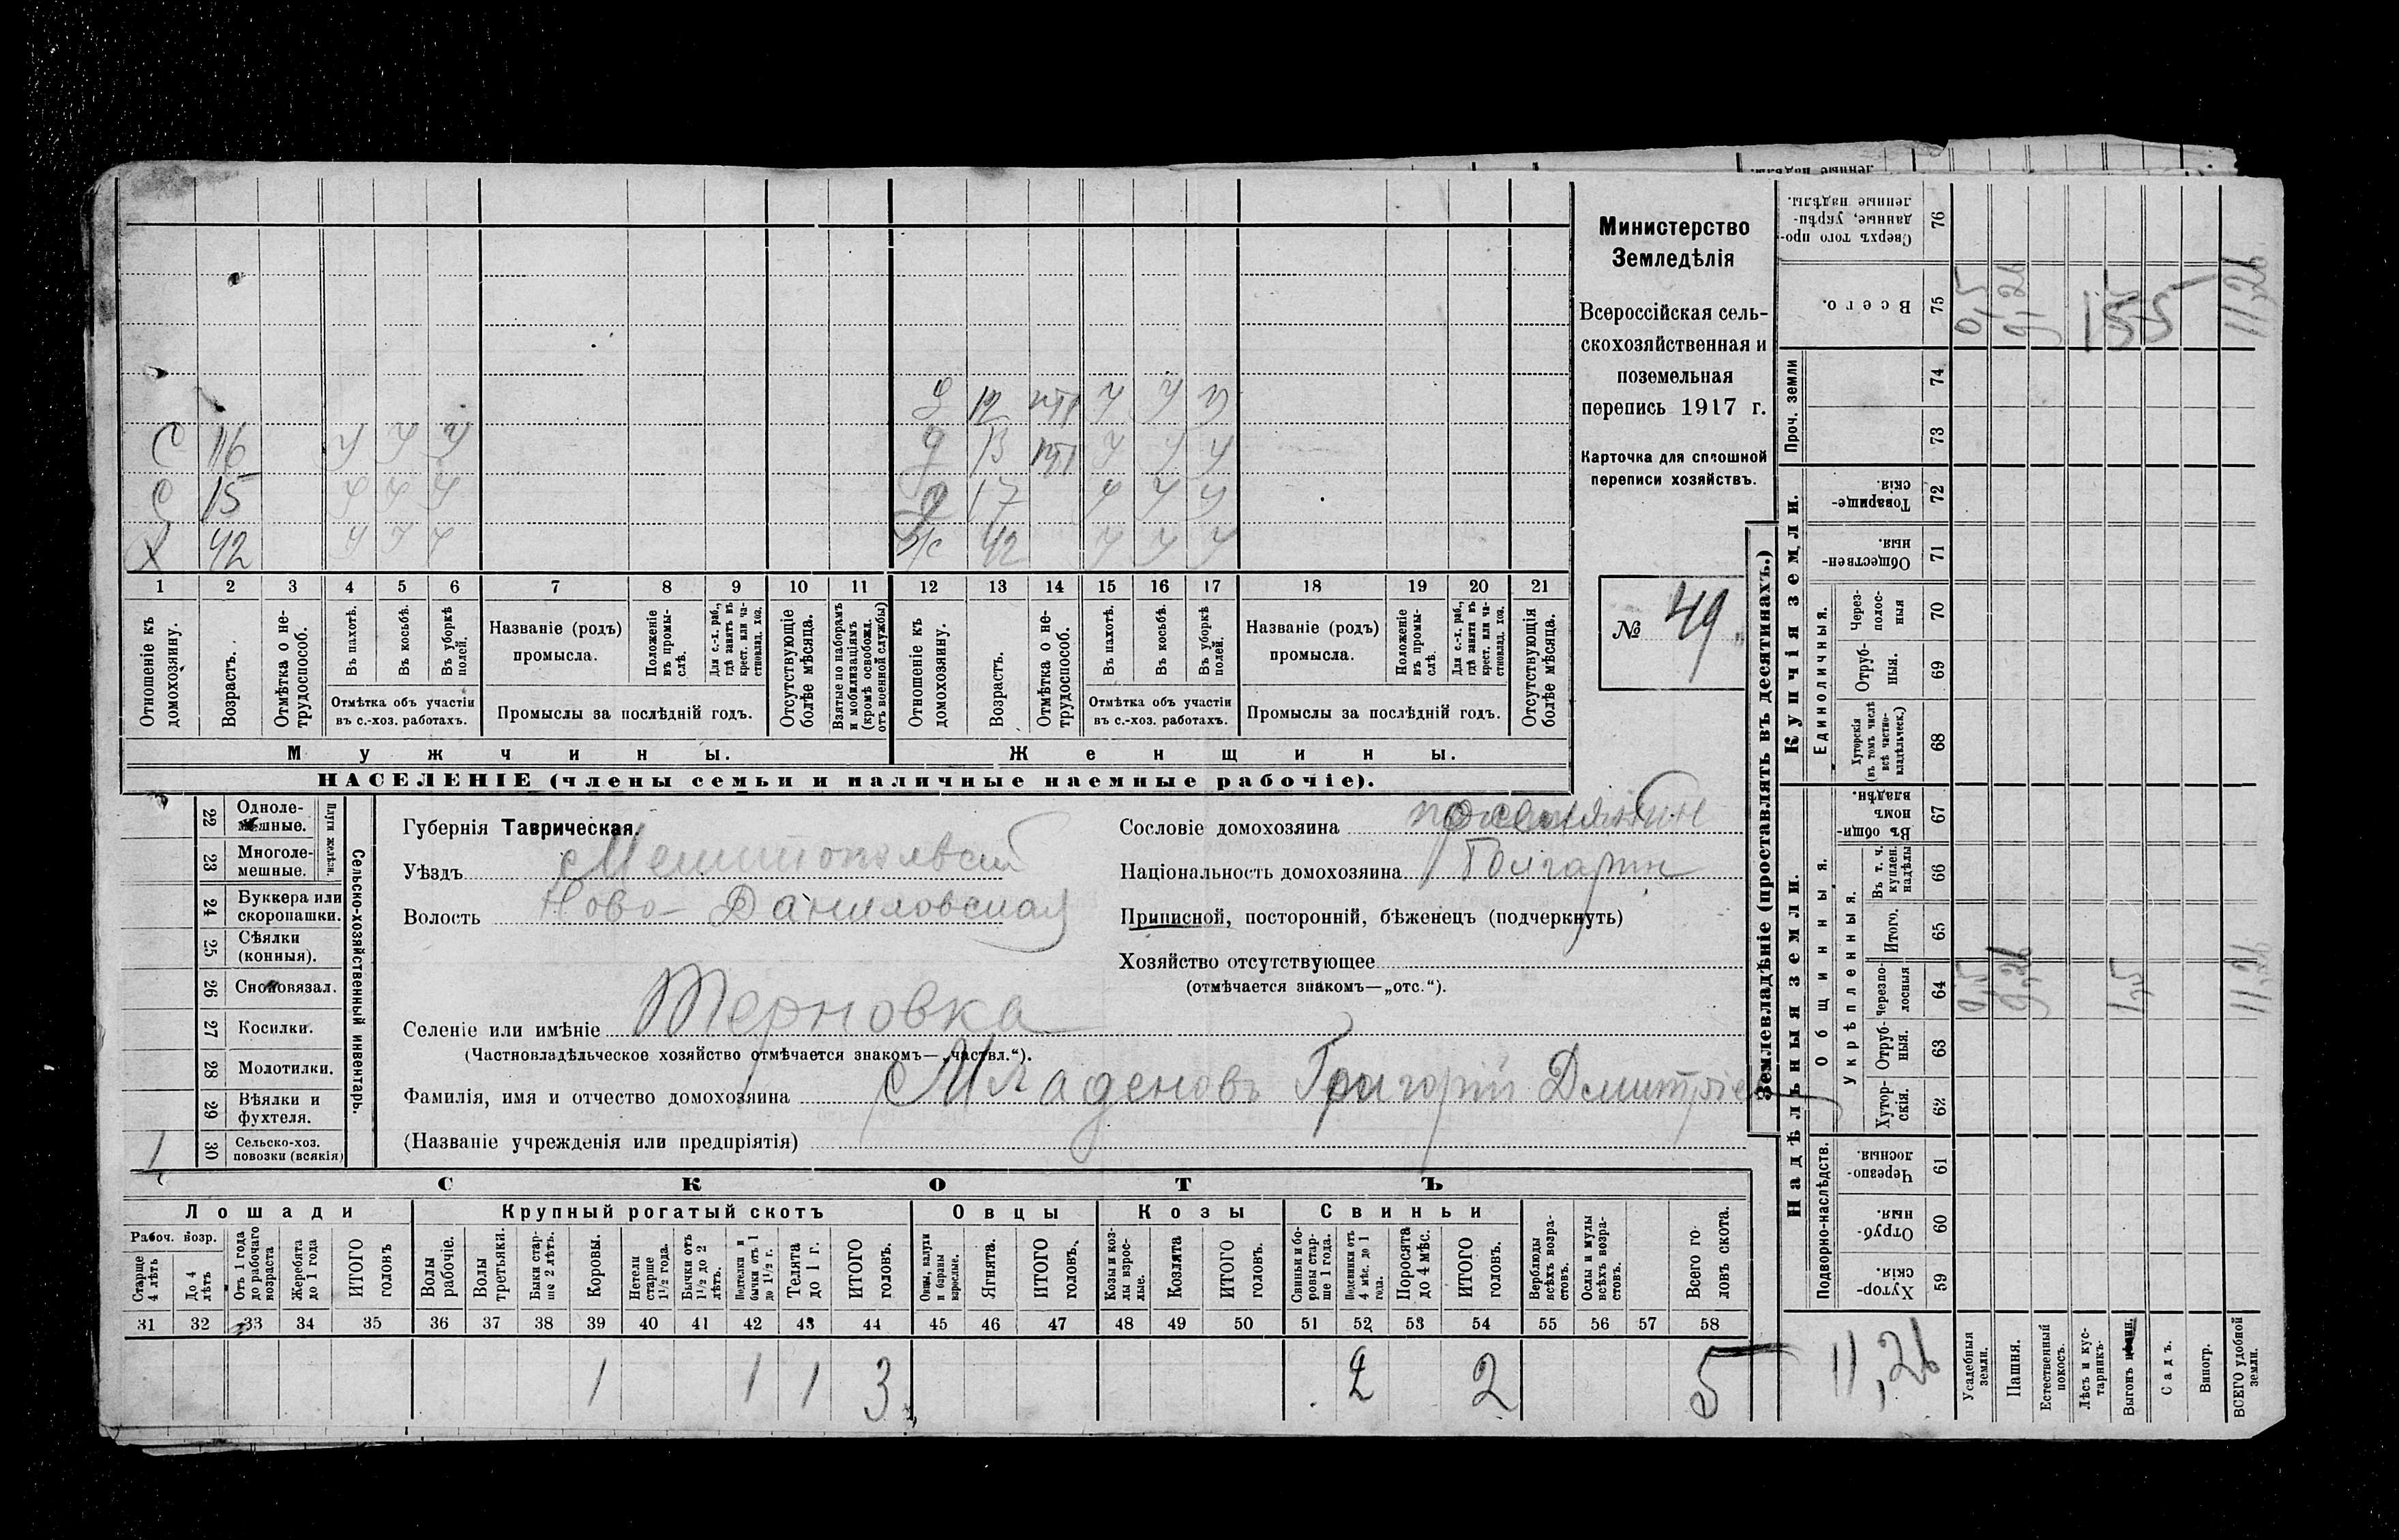 ленные надѣлы.
Министерство
Земледѣлія
Всероссійская сель-
скохозяйственная и
поземельная
перепись 1917 г.
Карточка для сплошной
переписи хозяйствъ.
№ 49
д 12 ч ч
С 16 ч ч ч д 13 ч ч ч
С 15 ч ч ч д 17 ч ч ч
Х 42 ч ч ч ж 42 ч ч ч
1 2 3 4 5 6 7 8 9 10 11 12 13 14 15 16 17 18 19 20 21
Отношеніе къ домохозяину.
Возрастъ.
Отмѣтка о не-трудоспособ.
Въ пахотѣ.
Въ косьбѣ.
Въ уборкѣ полей.
Отмѣтка объ участіи
въ с.-хоз. работахъ.
Названіе (родъ)
промысла.
Положеніе въ промы-слѣ.
Для с.-х. раб., гдѣ занятъ въ крест. или ча-стновлад. хоз.
Промыслы за послѣдній годъ.
Отсутствующіе болѣе мѣсяца.
Взятые по наборамъ и мобилизаціямъ (кромѣ освобожд. отъ военной службы)
Отношеніе къ домохозяину.
Возрастъ.
Отмѣтка о не-трудоспособ.
Въ пахотѣ.
Въ косьбѣ.
Въ уборкѣ полей.
Отмѣтка объ участіи
въ с.-хоз. работахъ.
Названіе (родъ)
промысла.
Положеніе въ промы-слѣ.
Для с.-х. раб., гдѣ занята въ крест. или ча-стновлад. хоз.
Промыслы за послѣдній годъ.
Отсутствующія болѣе мѣсяца.
Мужчины. Женщины.
НАСЕЛЕНІЕ (члены семьи и наличные наемные рабочіе).
22 Одноле-мешные.
23 Многоле-мешные.
Плуги желѣзн.
24 Буккера или скоропашки.
25 Сѣялки (конныя).
26 Сноповязал.
27 Косилки.
28 Молотилки.
29 Вѣялки и фухтеля.
1 30 Сельско-хоз. повозки (всякія)
Сельско-хозяйственный инвентарь.
Губернія Таврическая.
Уѣздъ Мелитопольскій
Волость Ново-Даниловская
Селеніе или имѣніе Терновка
(Частновладѣльческое хозяйство отмѣчается знакомъ—„частвл.“).
Фамилія, имя и отчество домохозяина Младеновъ Григорій Дмитріев
(Названіе учрежденія или предпріятія)
Сословіе домохозяина поселянин
Національность домохозяина Болгарин
Приписной, посторонній, бѣженецъ (подчеркнуть)
Хозяйство отсутствующее
(отмѣчается знакомъ—„отс.“).
СКОТЪ
Лошади Крупный рогатый скотъ Овцы Козы Свиньи
Рабоч. возр.
Старше 4 лѣтъ
До 4 лѣтъ
Отъ 1 года до рабочаго возраста
Жеребята до 1 года
ИТОГО головъ
Волы рабочіе.
Волы третьяки.
Быки стар-ше 2 лѣтъ.
Коровы.
Нетели старше 1½ года.
Бычки отъ 1½ до 2 лѣтъ.
Подтелки и бычки отъ 1 до 1½ г.
Телята до 1 г.
ИТОГО головъ.
Овцы, валухи и бараны взрослые.
Ягнята.
ИТОГО головъ.
Козы и коз-лы взрос-лые.
Козлята
ИТОГО головъ.
Свиньи и бо-ровы стар-ше 1 года.
Подсвинки отъ 4 мѣс. до 1 года.
Поросята до 4 мѣс.
ИТОГО головъ.
Верблюды всѣхъ возра-стовъ.
Ослы и мулы всѣхъ возра-стовъ.
Всего го-ловъ скота.
31 32 33 34 35 36 37 38 39 40 41 42 43 44 45 46 47 48 49 50 51 52 53 54 55 56 57 58
1 1 1 3 2 2 5
Землевладѣніе (проставлять въ десятинахъ.)
Надѣльныя земли. Купчія земли. Проч. земли
Подворно-наслѣдств.
Общинныя.
Укрѣпленныя.
Единоличныя.
Хутор-скія. 59
Отруб-ныя. 60
Черезпо-лосныя. 61
Хутор-скія. 62
Отруб-ныя. 63
Черезпо-лосныя 64
Итого. 65
Въ т. ч. куплен. надѣлы 66
Въ общи-номъ владѣн. 67
Хуторскія (въ томъ числѣ всѣ частно-владѣльческ.) 68
Отруб-ныя. 69
Через-полос-ныя 70
Обществен-ныя. 71
Товарище-скія. 72
73
74
Всего. 75
Сверхъ того про-данные, укрѣп-ленные надѣлы. 76
0,5 9,26 1,5 11,26
0,5 9,26 1,5 11,26
11,26
Усадебныя земли.
Пашня.
Естественный покосъ.
Лѣсъ и кус-тарникъ.
Выгонъ
Садъ.
Виногр.
ВСЕГО удобной земли.